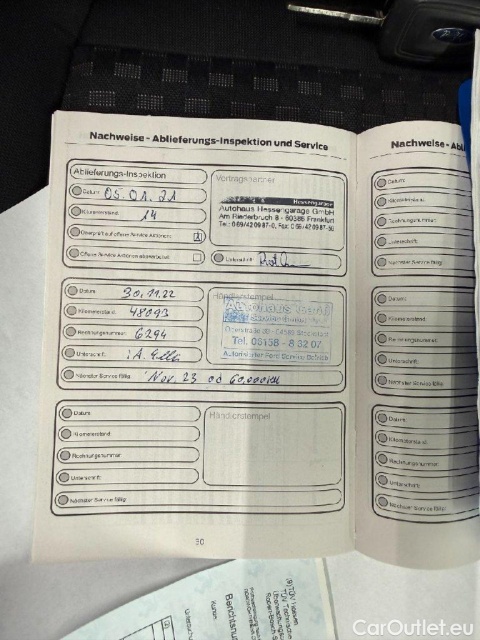 Nachweise - Ablieferungs-Inspektion und Service
Ablieferungs-Inspektion
Datum: 05.01.21
Kilometerstand: 14
Überprüft auf offene Service-Aktionen
Offene Service-Aktionen abgearbeitet
Vertragspartner
Hessengarage
Autohaus Hessengarage GmbH
Am Riederbruch 8 - 60386 Frankfurt
Unterschrift:
Datum: 30.11.22
Kilometerstand: 48093
Rechnungsnummer: 6294
Unterschrift:
Nächster Service fällig: Nov. 23 od 60.000 KM
Händlerstempel
Tel. 05158 - 8 32 07
Autorisierter Ford Service Betrieb
Datum:
Kilometerstand:
Rechnungsnummer:
Unterschrift:
Nächster Service fällig:
Händlerstempel
Nachweise - Abl
Datum:
Kilometerstand:
Rechnungsnummer:
Unterschrift:
Nächster Service fällig:
Datum:
Kilometerstand:
Rechnungsnummer:
Unterschrift:
Nächster Service fällig:
Datum:
Kilometerstand:
Rechnungsnummer:
Unterschrift:
Nächster Service fällig:
CarOutlet.eu